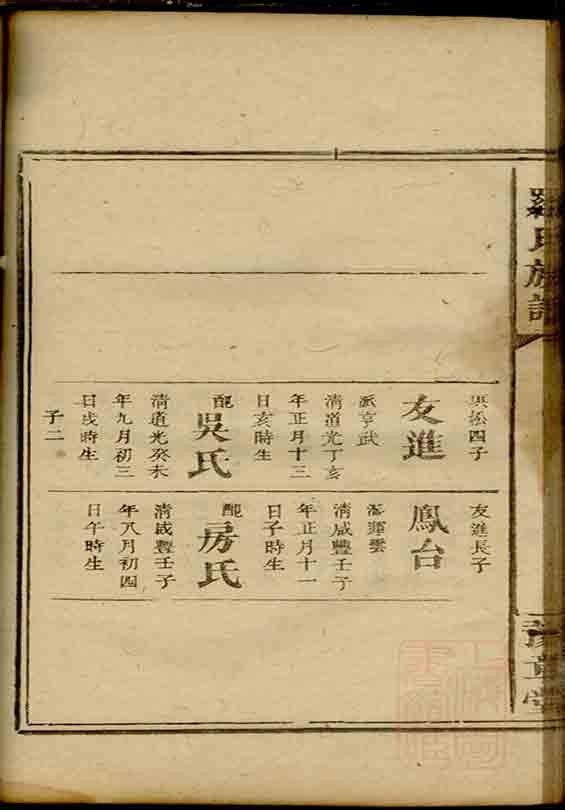 氏族譜
洪松四子
友進
派亨武
清道光丁亥
年正月十三
日亥時生
配
吳氏
清道光癸未
年九月初三
日戌時生
子二
友進長子
鳳台
清咸豐壬子
年正月十一
日子時生
配
房氏
清咸豐壬子
年八月初四
日午時生
堂